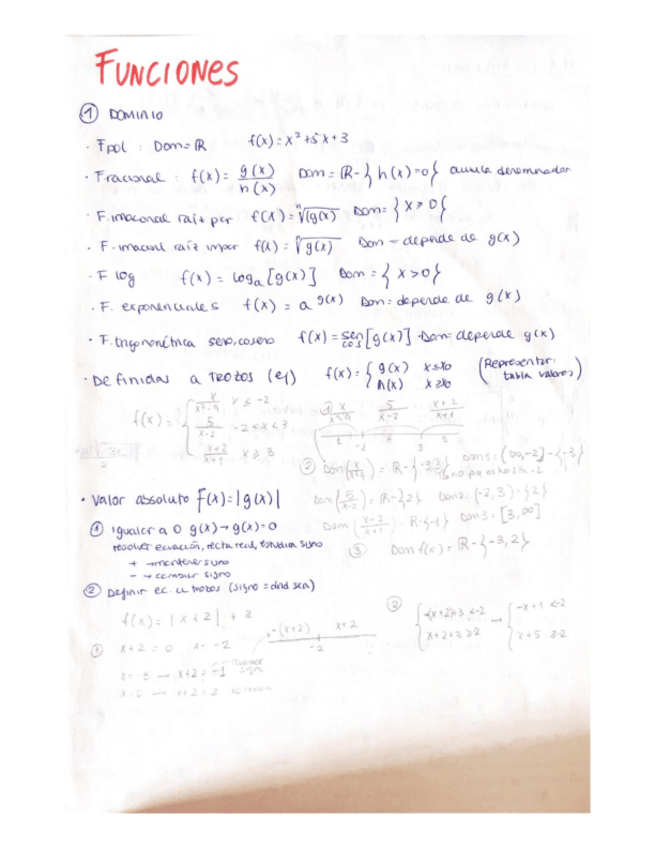 FUNCIONES
① DOMINIO
· Fpol : Dom=ℝ f(x)=x²+5x+3
· F racional : f(x)= g(x)/h(x) Dom=ℝ-{h(x)=0} anula denominador
· F. irracional raíz par f(x)=ⁿ√(g(x) Dom={x≥0}
· F. irracional raíz impar f(x)=ⁿ√g(x) Dom = depende de g(x)
· F log f(x)=logₐ[g(x)] Dom={x>0}
· F. exponenciales f(x)=a^g(x) Dom=depende de g(x)
· F. trigonométrica seno, coseno f(x)=sen cos [g(x)] Dom=depende g(x)
· DEFINIDAS A TROZOS (ej) f(x)={ g(x) x≤x₀ (Representar:
h(x) x≥x₀ tabla valores)
f(x)={ x/x²-9 x≤-2 ① x/x²-9 5/x-2 x+2/x+1
5/x-2 -2<x<3 -2 3
x+2/x+1 x≥3
② Dom(x/x²-9)=ℝ-{-3,3} Dom1: (∞,-2]-{-3}
Dom(5/x-2)=ℝ-{2} Dom2: (-2,3)-{2}
Dom(x+2/x+1)=ℝ-{-1} Dom3=[3,∞]
③ Dom f(x)=ℝ-{-3,2}
· Valor absoluto F(x)=|g(x)|
① Igualar a 0 g(x)→g(x)=0
resolver ecuación, recta real, estudiar signo
+ → mantener signo
- → cambiar signo
② Definir ec. a trozos (signo = dnd sea)
f(x)=|x+2|+3
① x+2=0 x=-2 -(x+2) x+2
-2
x=-3 → x+2=-1 cambiar signo
x=0 → x+2=2
② { -(x+2)+3 <-2 → { -x+1 <-2
x+2+3 ≥-2 x+5 ≥-2